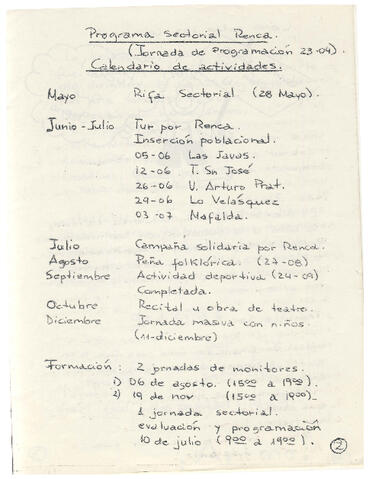 Programa Sectorial Renca.
(Jornada de Programación 23-04).
Calendario de actividades.
Mayo Rifa Sectorial (28 Mayo).
Junio-Julio Tur por Renca.
Inserción poblacional.
05-06 Las Javas.
12-06 T. Sn José
26-06 U. Arturo Prat.
29-06 Lo Velásquez
03-07 Mafalda.
Julio Campaña solidaria por Renca.
Agosto Peña folklórica. (27-08)
Septiembre Actividad deportiva (24-09)
Completada.
Octubre Recital u obra de teatro.
Diciembre Jornada masiva con niños.
(11-diciembre)
Formación: 2 jornadas de monitores.
1) 06 de agosto. (15:00 a 19:00).
2) 19 de nov (15:00 a 19:00).
1 jornada sectorial.
evaluación y programación
10 de julio (9:00 a 19:00).
2